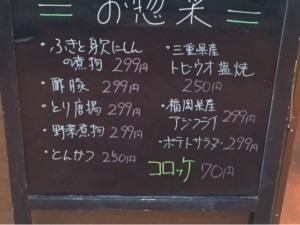 お惣菜
・ふきと身欠にしん
の煮物 299円
・酢豚 299円
・とり唐揚 299円
・野菜煮物 299円
・とんかつ 250円
・三重県産
トビウオ塩焼
250円
・福岡県産
アジフライ 299円
・ポテトサラダ 299円
コロッケ 70円